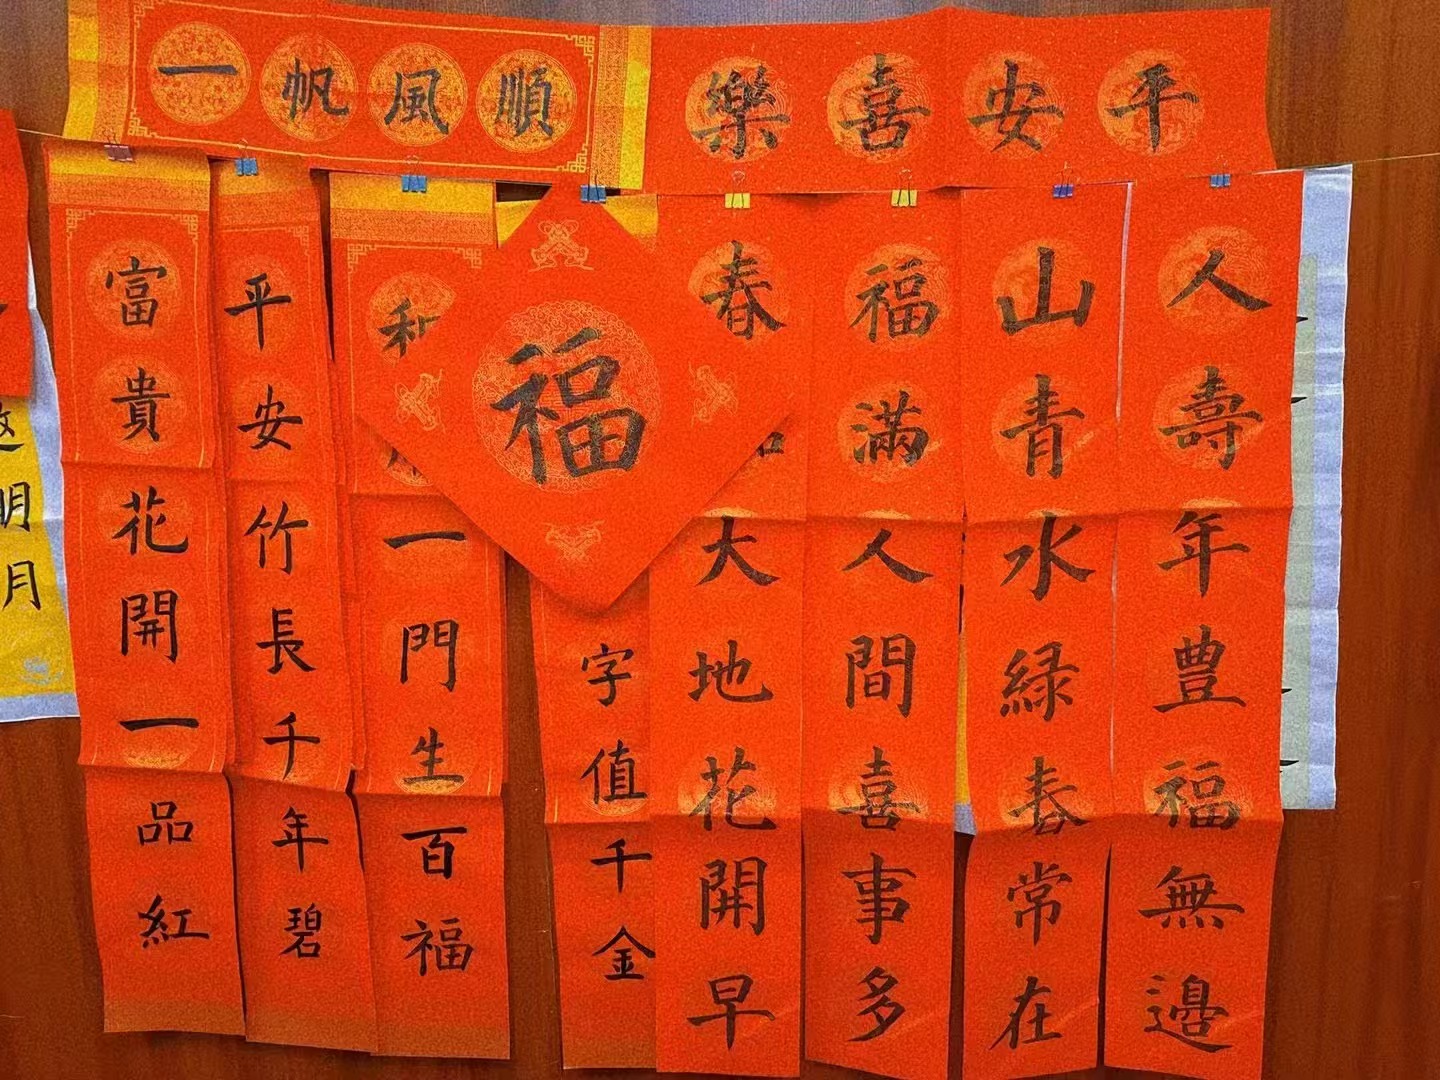 一帆風順
樂喜安平
富貴花開一品紅
平安竹長千年碧
和
一門生百福
福
字值千金
春
大地花開早
福滿人間喜事多
山青水緑春常在
人壽年豊福無邊
明月